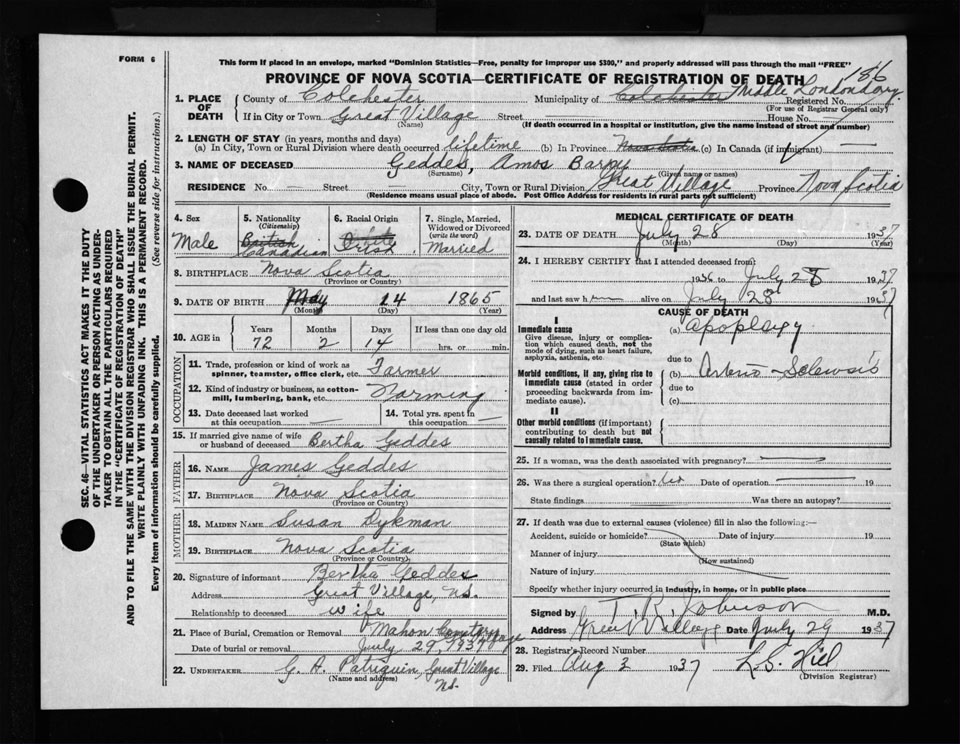 FORM 6
This form if placed in an envelope, marked "Dominion Statistics—Free, penalty for improper use $300," and properly addressed will pass through the mail "FREE"
PROVINCE OF NOVA SCOTIA—CERTIFICATE OF REGISTRATION OF DEATH
186
1. PLACE OF DEATH County of Colchester Municipality of Colchester Middle Londonderry Registered No.
(For use of Registrar General only)
If in City or Town Great Village Street House No.
(Name) (If death occurred in a hospital or institution, give the name instead of street and number)
2. LENGTH OF STAY (in years, months and days)
(a) In City, Town or Rural Division where death occurred lifetime (b) In Province Nova Scotia (c) In Canada (if immigrant) —
3. NAME OF DECEASED Geddes, Amos
(Surname) (Given name or names)
RESIDENCE No. — Street City, Town or Rural Division Great Village Province Nova Scotia
(Residence means usual place of abode. Post Office Address for residents in rural parts not sufficient)
4. Sex Male
5. Nationality (Citizenship) British Canadian
6. Racial Origin White Irish
7. Single, Married, Widowed or Divorced (write the word) Married
8. BIRTHPLACE Nova Scotia
(Province or Country)
9. DATE OF BIRTH May 14 1865
(Month) (Day) (Year)
10. AGE in Years 72 Months 2 Days 14 If less than one day old hrs. or min.
OCCUPATION
11. Trade, profession or kind of work as spinner, teamster, office clerk, etc. Farmer
12. Kind of industry or business, as cotton-mill, lumbering, bank, etc. Farming
13. Date deceased last worked at this occupation —
14. Total yrs. spent in this occupation —
15. If married give name of wife or husband of deceased Bertha Geddes
FATHER
16. NAME James Geddes
17. BIRTHPLACE Nova Scotia
MOTHER
18. MAIDEN NAME Susan Dykman
19. BIRTHPLACE Nova Scotia
(Province or Country)
20. Signature of informant Bertha Geddes
Address Great Village, N.S.
Relationship to deceased wife
21. Place of Burial, Cremation or Removal Mahon Cemetery
Date of burial or removal July 29, 1937
22. UNDERTAKER G. H. Patriquin, Great Village
(Name and address) N.S.
MEDICAL CERTIFICATE OF DEATH
23. DATE OF DEATH July 28 1937
(Month) (Day) (Year)
24. I HEREBY CERTIFY that I attended deceased from:
1936 to July 28 1937
and last saw h im alive on July 28 1937
CAUSE OF DEATH
I
Immediate cause
Give disease, injury or complication which caused death, not the mode of dying, such as heart failure, asphyxia, asthenia, etc
(a) apoplexy
due to
Morbid conditions, if any, giving rise to immediate cause (stated in order proceeding backwards from immediate cause).
(b) Arterio-Sclerosis
due to
(c)
II
Other morbid conditions (if important) contributing to death but not causally related to immediate cause.
25. If a woman, was the death associated with pregnancy? —
26. Was there a surgical operation? No Date of operation 19
State findings Was there an autopsy?
27. If death was due to external causes (violence) fill in also the following:—
Accident, suicide or homicide? Date of injury 19
(State which)
Manner of injury
(How sustained)
Nature of injury
Specify whether injury occurred in industry, in home, or in public place
Signed by T. R. Johnson M.D.
Address Great Village Date July 29 1937
28. Registrar's Record Number
29. Filed Aug 2 1937 L.S. Hill
(Division Registrar)
SEC. 46—VITAL STATISTICS ACT MAKES IT THE DUTY
OF THE UNDERTAKER OR PERSON ACTING AS UNDER-
TAKER TO OBTAIN ALL THE PARTICULARS REQUIRED
IN THE "CERTIFICATE OF REGISTRATION OF DEATH"
AND TO FILE THE SAME WITH THE DIVISION REGISTRAR WHO SHALL ISSUE THE BURIAL PERMIT.
WRITE PLAINLY WITH UNFADING INK. THIS IS A PERMANENT RECORD.
Every item of information should be carefully supplied. (See reverse side for instructions.)